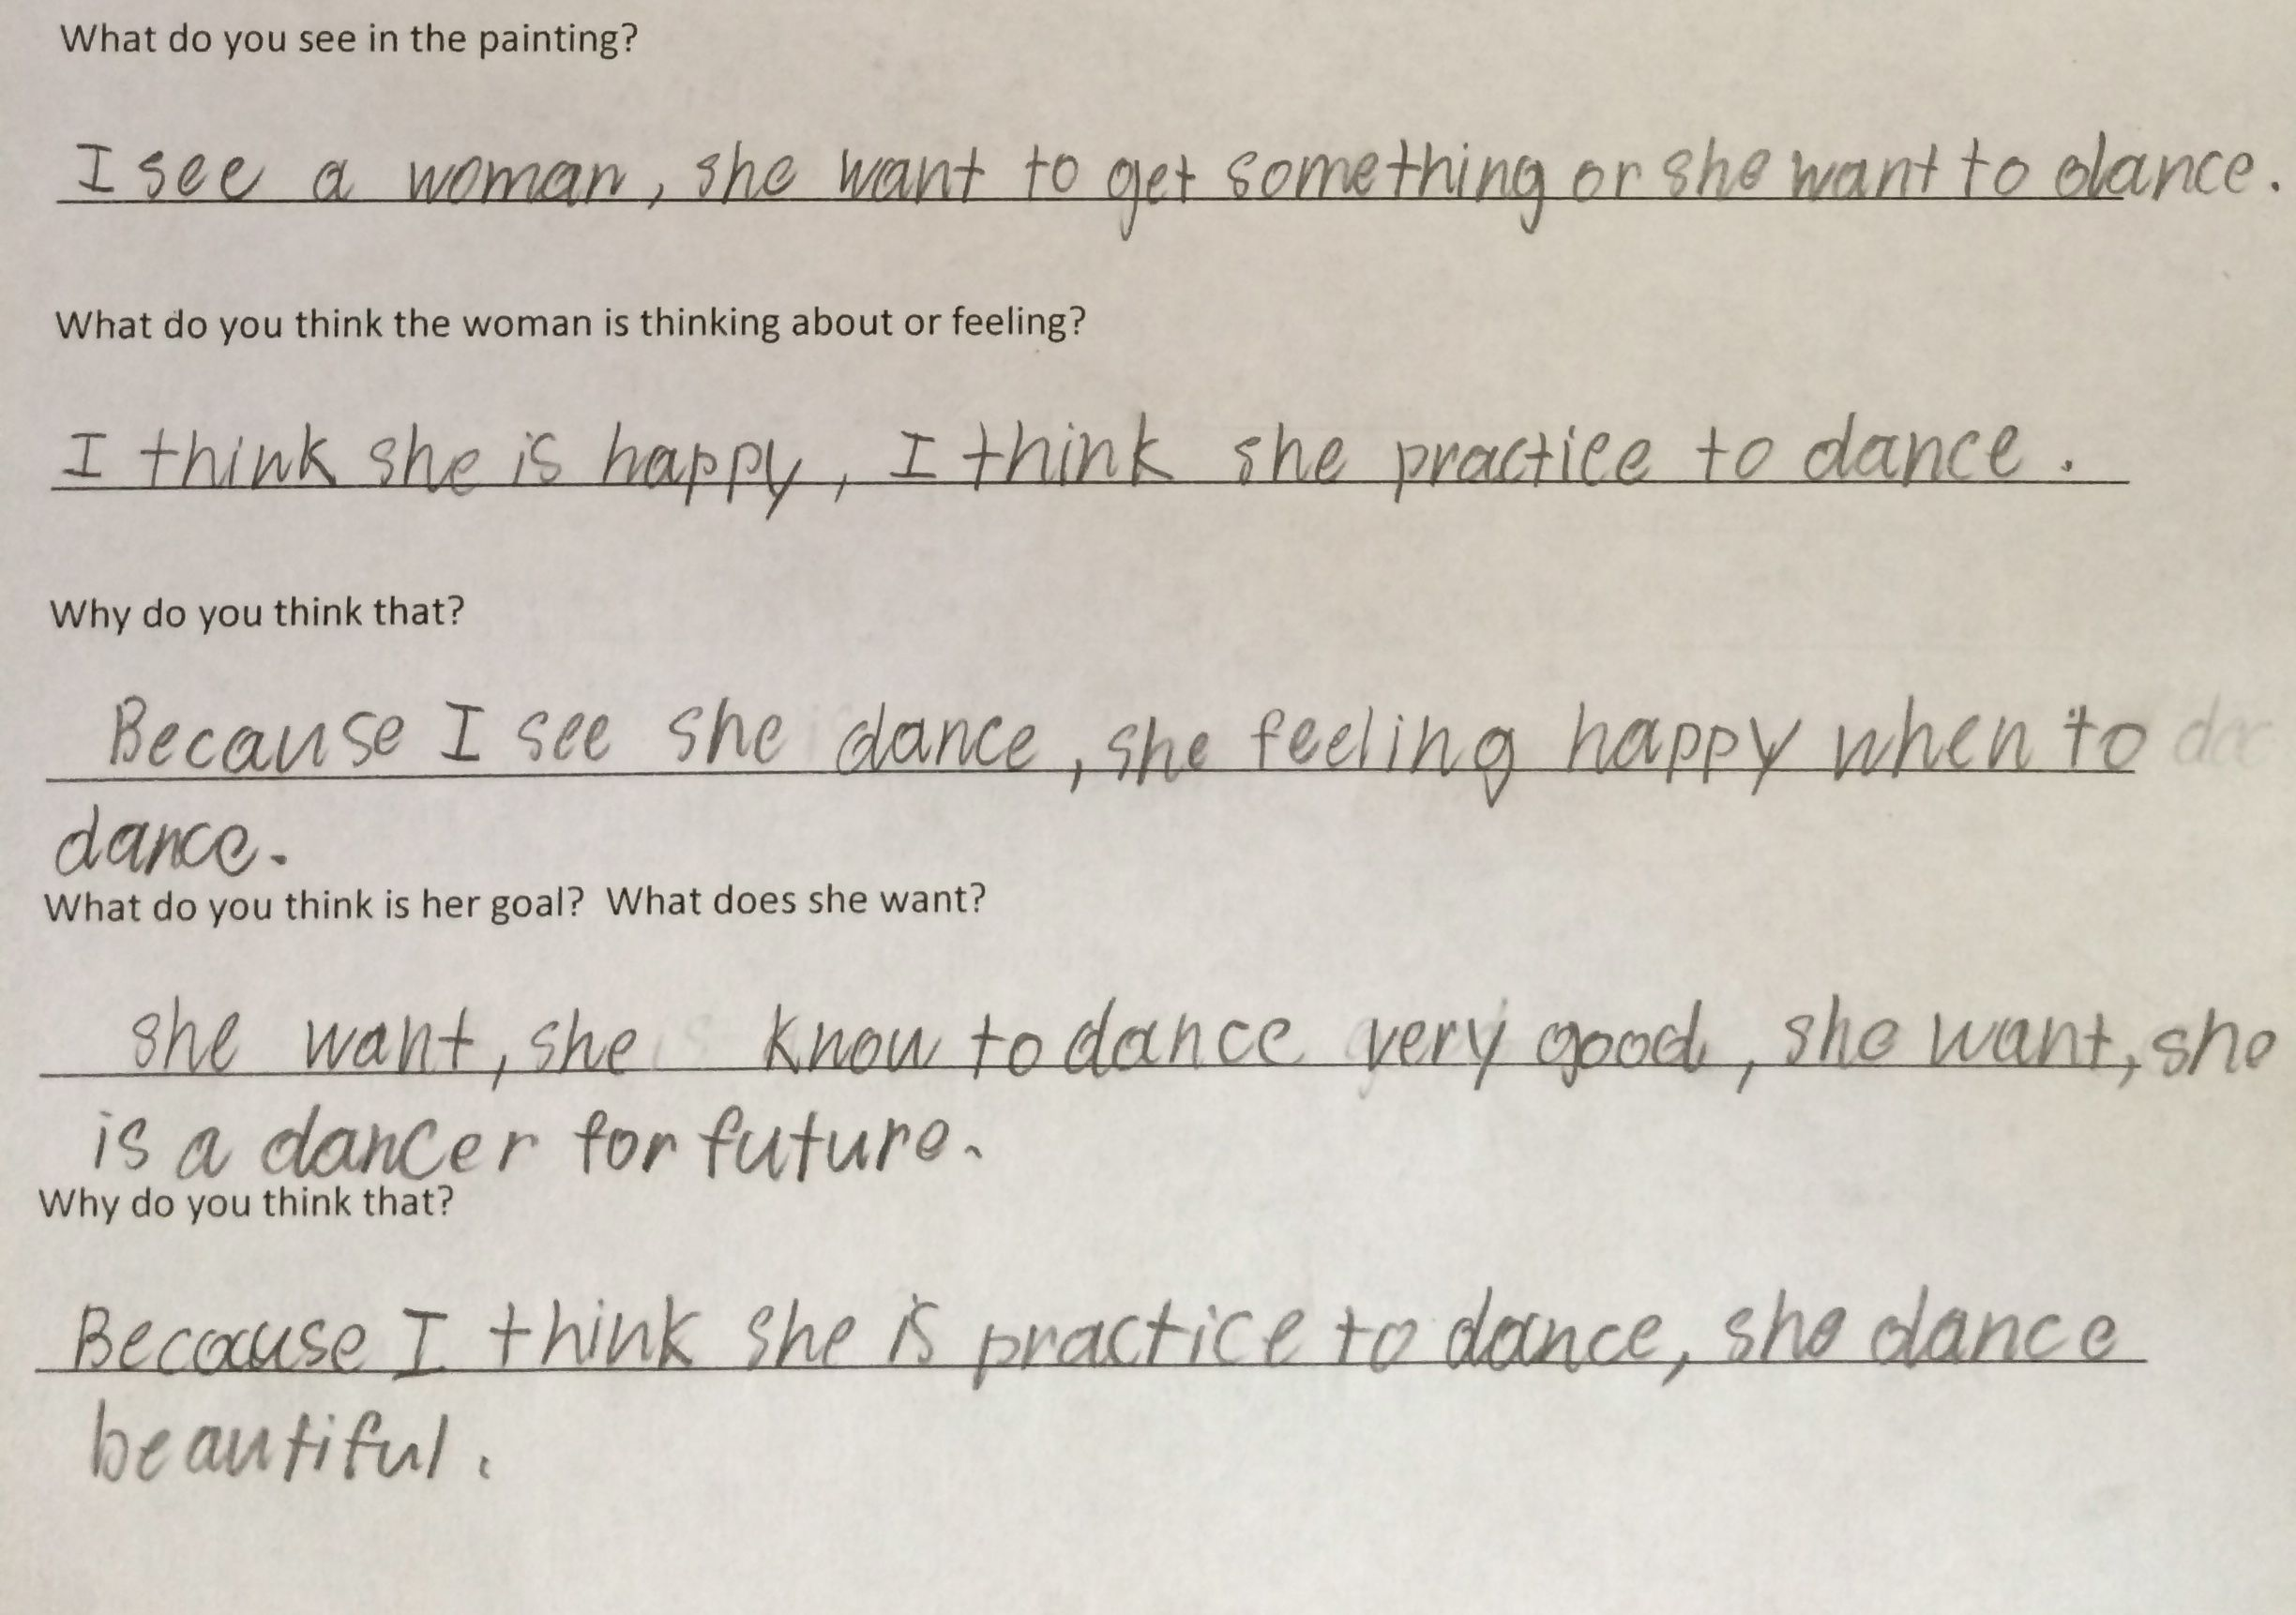 What do you see in the painting?
I see a woman, she want to get something or she want to dance.
What do you think the woman is thinking about or feeling?
I think she is happy, I think she practice to dance.
Why do you think that?
Because I see she dance, she feeling happy when to
dance.
What do you think is her goal?  What does she want?
she want, she know to dance very good, she want, she
is a dancer for future.
Why do you think that?
Because I think she is practice to dance, she dance
beautiful.